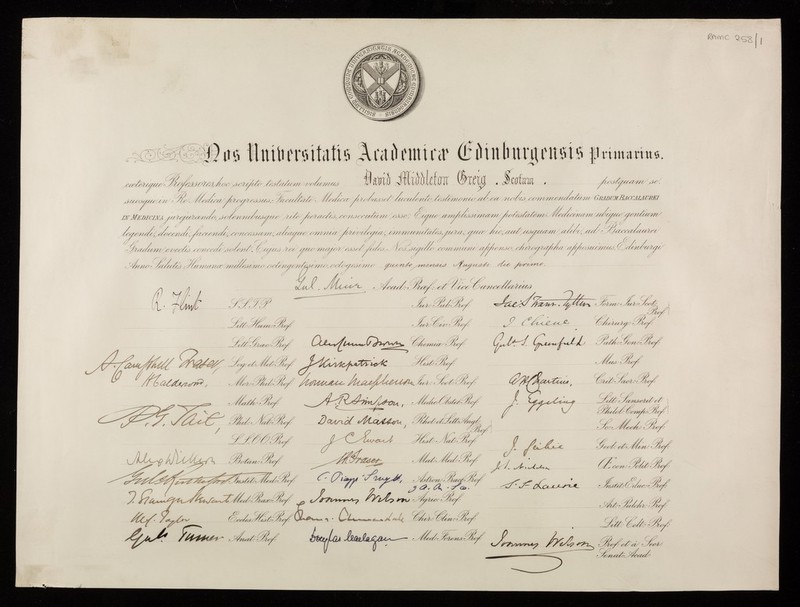 RAMC 258/1
Nos Universitatis Academicæ Edinburgensis Primarius,
cæterique Professores, hoc scripto testatum volumus David Middleton Greig, Scotum, postquam se
suosque in Re Medica progressus Facultate Medica probasset luculento testimonio ab ea nobis commendatum GRADUM BACCALAUREI
IN MEDICINA
privilegia, immunitates, jura, quæ hic, aut usquam alibi, ad Baccalaurei
Gradum evectis concedi solent. Cujus rei quo major esset fides Nos sigillo communi appenso, chirographa apposuimus. Edinburgi
Anno Salutis Humanæ millesimo octingentesimo octogesimo quinto, mensis Augusti die primo.
Gul. Muir, Acad. Præf. et Vice Cancellarius
R. Flint S.S.T.P. Jur. Pub. Prof. Jac. S. Fraser Tytler Prof.
Litt. Hum. Prof. Jur. Civ. Prof. J. Chiene Chirurg. Prof.
Litt. Græc. Prof. Alex Crum Brown Chemiæ Prof. Gul. S. Greenfield Path. Gen. Prof.
A. Campbell Fraser, Log. et Met. Prof. J. Kirkpatrick Hist. Prof. Mus. Prof.
H. Calderwood. Mor. Phil. Prof. Norman Macpherson Jur. Scot. Prof. A. H. Charteris, Crit. Sacr. Prof.
Math. Prof. A R Simpson, Medic. Obstet. Prof. J. Eggeling Litt. Sanscrit. et Philol. Comp. Prof.
P. G. Tait, Phil. Nat. Prof. David Masson, Rhet. et Litt. Angl. Prof. Sc. Mech. Prof.
L.L.O.O. Prof. J C Ewart Hist. Nat. Prof. J. Geikie Geol. et Min. Prof.
Alex Dickson Botan. Prof. Mat. Med. Prof. Œcon. Polit. Prof.
Instit. Med. Prof. C. Piazzi Smyth, Astron. Pract. Prof. S. S. Laurie Instit. Educ. Prof.
T. Grainger Stewart Med. Prax. Prof. Joannes Wilson Agric. Prof. Art. Pulchr. Prof.
Mal. Taylor Eccles. Hist. Prof. Thomas Annandale Chir. Clin. Prof. Litt. Celt. Prof.
Gul. Turner Anat. Prof. Douglas Maclagan Med. Forens. Prof. Joannes Wilson Prof. et a Secr. Senat. Acad.